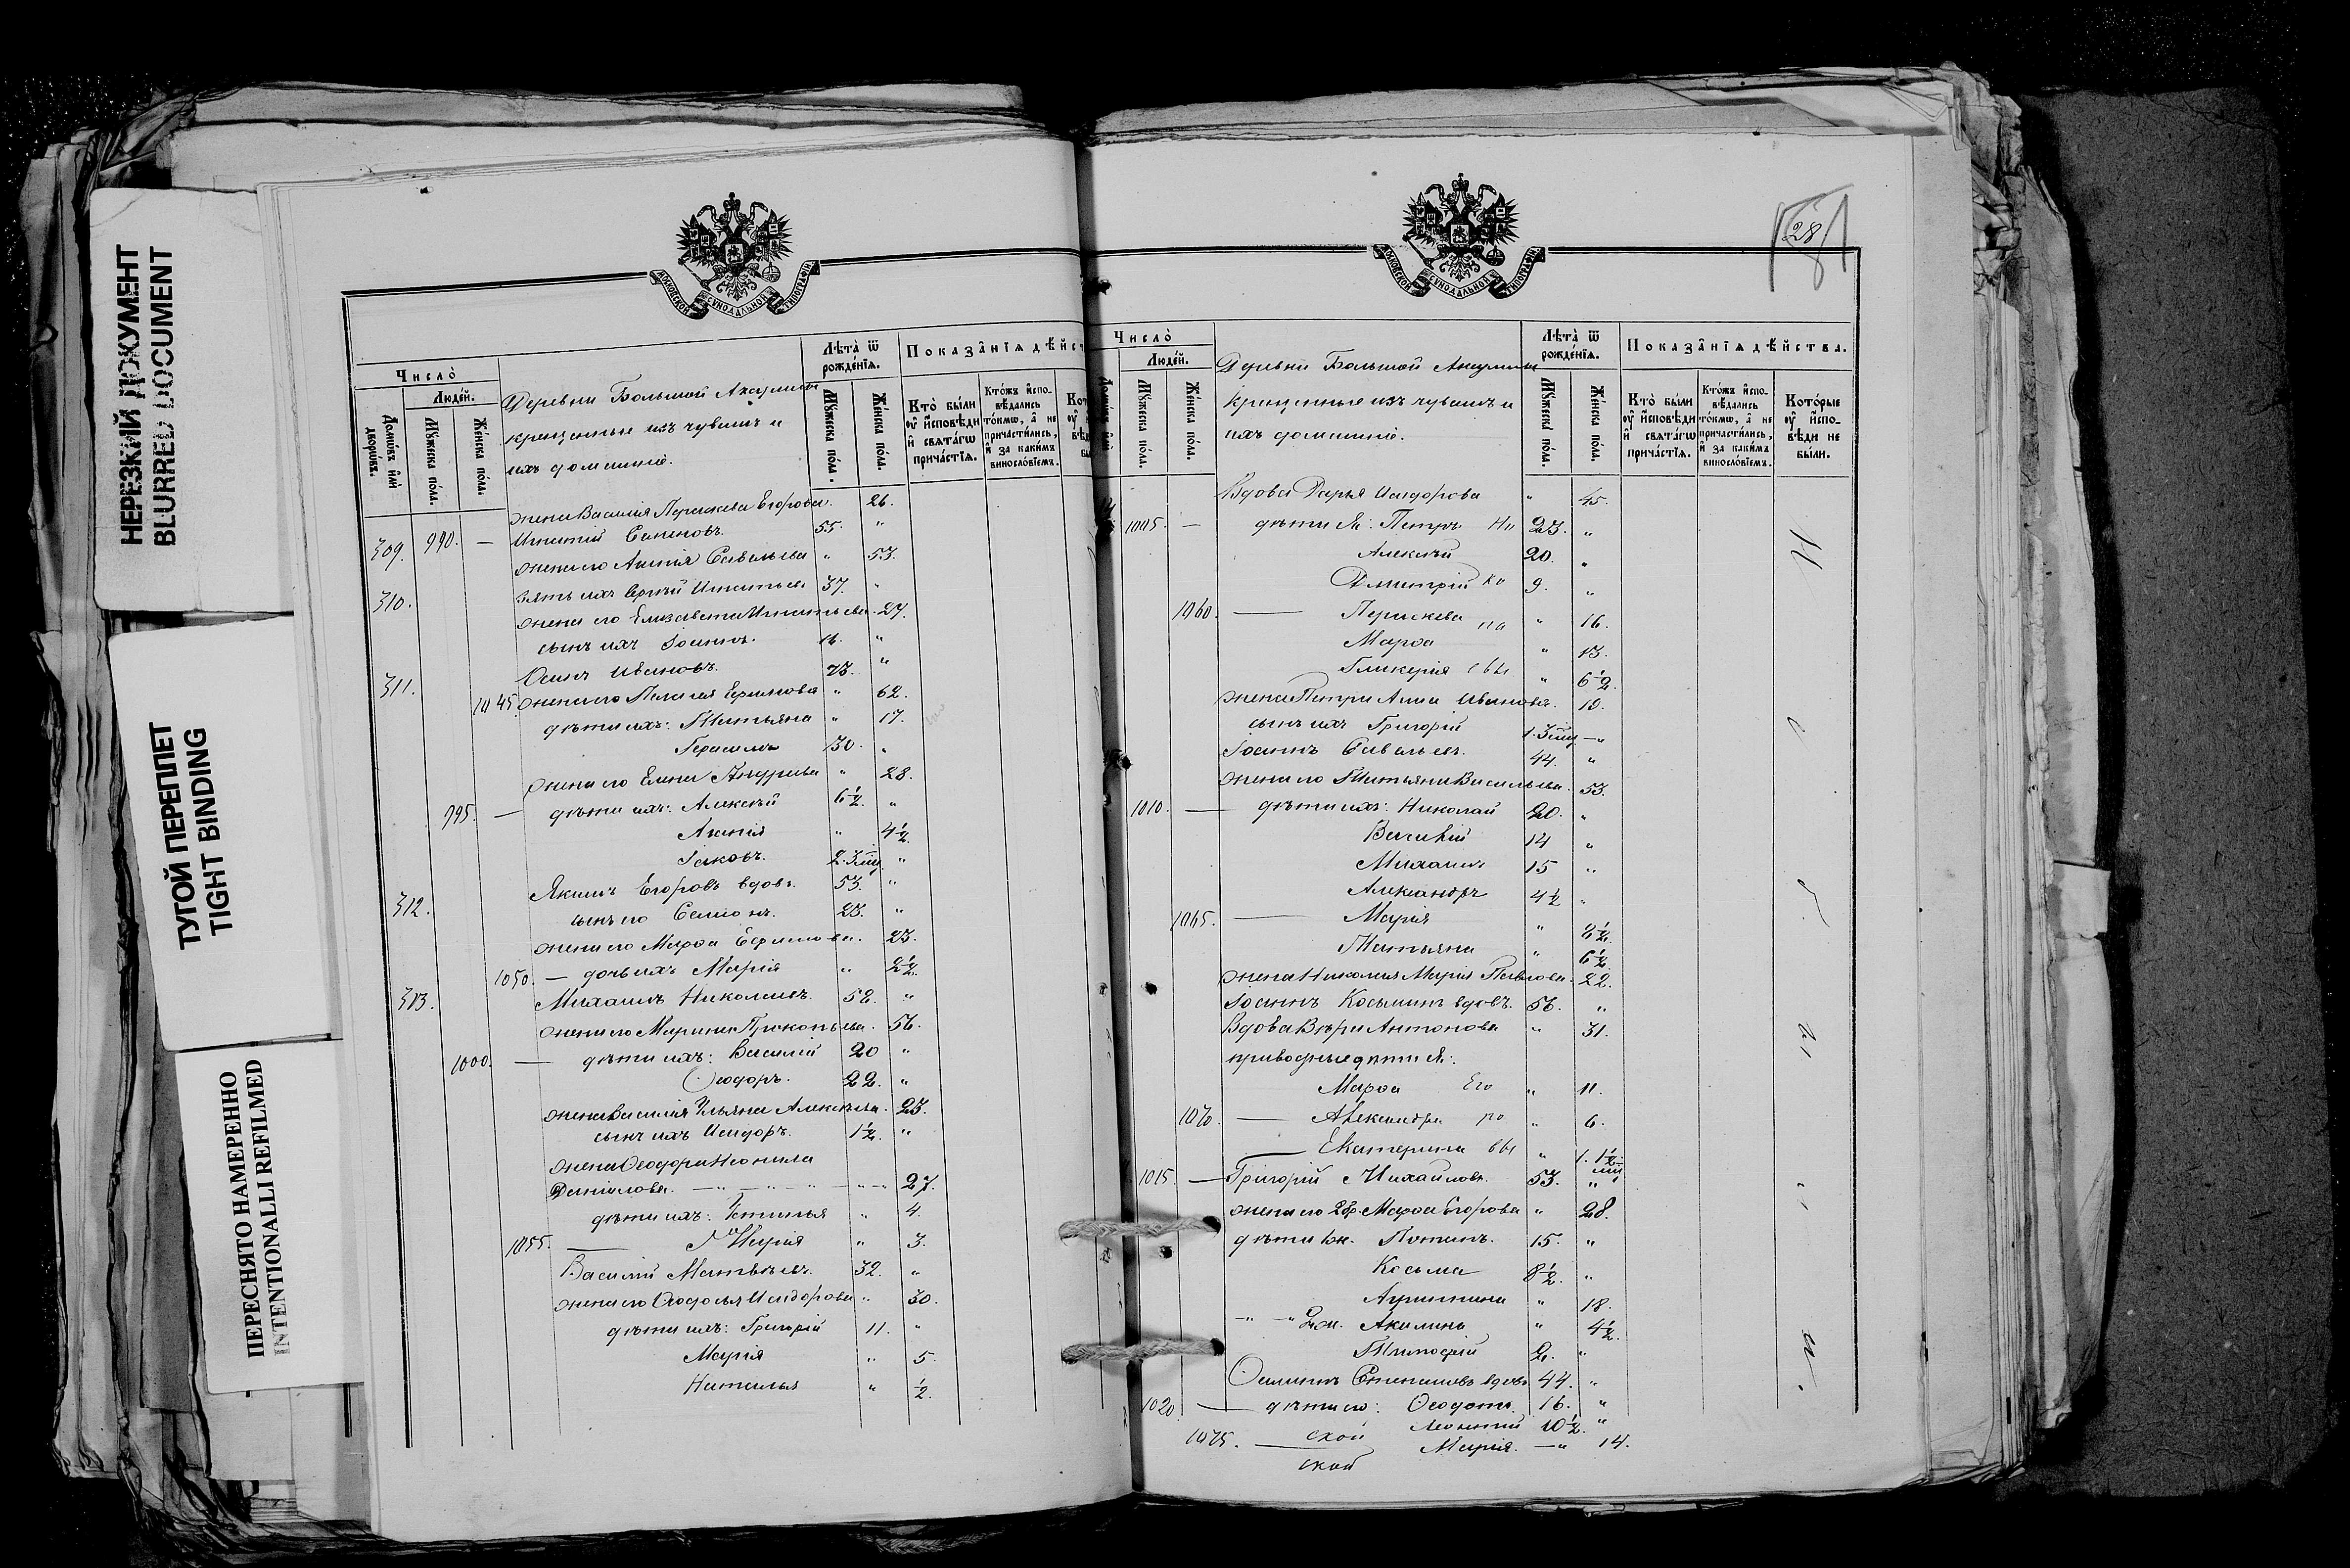 НЕРЕЗКИЙ ДОКУМЕНТ
BLURRED DOCUMENT
ТУГОЙ ПЕРЕПЛЕТ
TIGHT BINDING
ПЕРЕСНЯТО НАМЕРЕННО
INTENTIONALLI REFILMED
МОСКОВСКОЙ СѴНОДАЛЬНОЙ ТИПОГРАФІИ
Число̀
Людей.
Домѡвъ или дворѡвъ.
Мꙋжеска пола.
Женска пола.
Деревни Большой
крещенные изъ чувашъ и
ихъ домашніе.
Лѣта ѿ рожденїѧ.
Мꙋжеска пола.
Женска пола.
Показанїѧ дѣйст
Кто были оу исповѣди и свѧтагѡ причастїѧ.
Ктожъ исповѣдались токмѡ, а не причастились, и за какимъ винословїемъ.
жена Василія Параскева Егорова. 26.
309. 990. — Игнатій Семеновъ. 55. "
жена его Анисія Савельева " 53.
310. зять ихъ Сергѣй Игнатьев 37. "
жена его Елизавета Игнатьева. 27.
сынъ ихъ Іоаннъ. "
311. Осипъ Ивановъ. 73. "
1045 жена его Пелагея Ефимова " 62.
дѣти ихъ: Татьяна " 17.
Герасимъ 30. "
жена его Елена Андреева " 28.
995. — дѣти ихъ: Алексѣй 6½. "
Анисія " 4½.
Іаковъ. "
312. Якимъ Егоровъ вдовъ. 53. "
сынъ его Семіонъ. 23. "
жена его Марѳа Ефимова. 23.
1050. — дочь ихъ Марія " 2½.
313. Михаилъ Николаевъ. 52. "
жена его Марина Прокопьева. 56.
1000. — дѣти ихъ: Василій 20 "
Ѳеодоръ. 22. "
жена Василія Ульяна Алексѣева. 23.
сынъ ихъ Исидоръ. 1½. "
жена Ѳеодора Неонила
Даніилова. 27.
дѣти ихъ: Устинья " 4.
1055. — Марія " 3.
Василій Матвѣевъ. 32. "
жена его Ѳеодосья Исидорова " 30.
дѣти ихъ: Григорій 11. "
Марія " 5.
Наталья " ½.
28.
МОСКОВСКОЙ СѴНОДАЛЬНОЙ ТИПОГРАФІИ
Число̀
Людей.
Мꙋжеска пола.
Женска пола.
Деревни Большой
крещенные изъ чувашъ и
ихъ домашніе.
Лѣта ѿ рожденїѧ.
Мꙋжеска пола.
Женска пола.
Показанїѧ дѣйства.
Кто были оу исповѣди и свѧтагѡ причастїѧ.
Ктожъ исповѣдались токмѡ, а не причастились, и за какимъ винословїемъ.
Которые оу исповѣди не были.
Вдова Дарья Исидорова " 45.
1005. — дѣти Я: Петръ 23. "
Алексѣй 20. "
Дмитрій 9. "
1060. — Параскева " 16.
Марѳа " 13.
Гликерія " 6½.
жена Петра Анна Иванова. 19.
сынъ ихъ Григорій
Іоаннъ Савельевъ. 44. "
жена его Татьяна Васильева. 53.
1010. — дѣти ихъ: Николай 20. "
Василій 14 "
Михаилъ 15 "
Александръ 4½ "
1065. — Марія " 2½.
Татьяна " 6½.
жена Николая Марія Павлова. 22.
Іоаннъ Косьминъ вдовъ. 56. "
Вдова Вѣра Антонова " 31.
приводные дѣти Я:
Марѳа " 11.
1070. — Александра " 6.
— Екатерина "
1015. — Григорій Михайловъ. 53. "
жена его 2бр. Марѳа Егорова " 28.
дѣти 1ж. 15. "
Косьма 8½. "
Агриппина " 18.
2ж. Акилина " 4½.
Тимофей 2. "
Степановъ вдовъ 44. "
1020. — дѣти его: Ѳеодотъ. 16. "
Леонтій 10½. "
1075. — Марія. " 14.